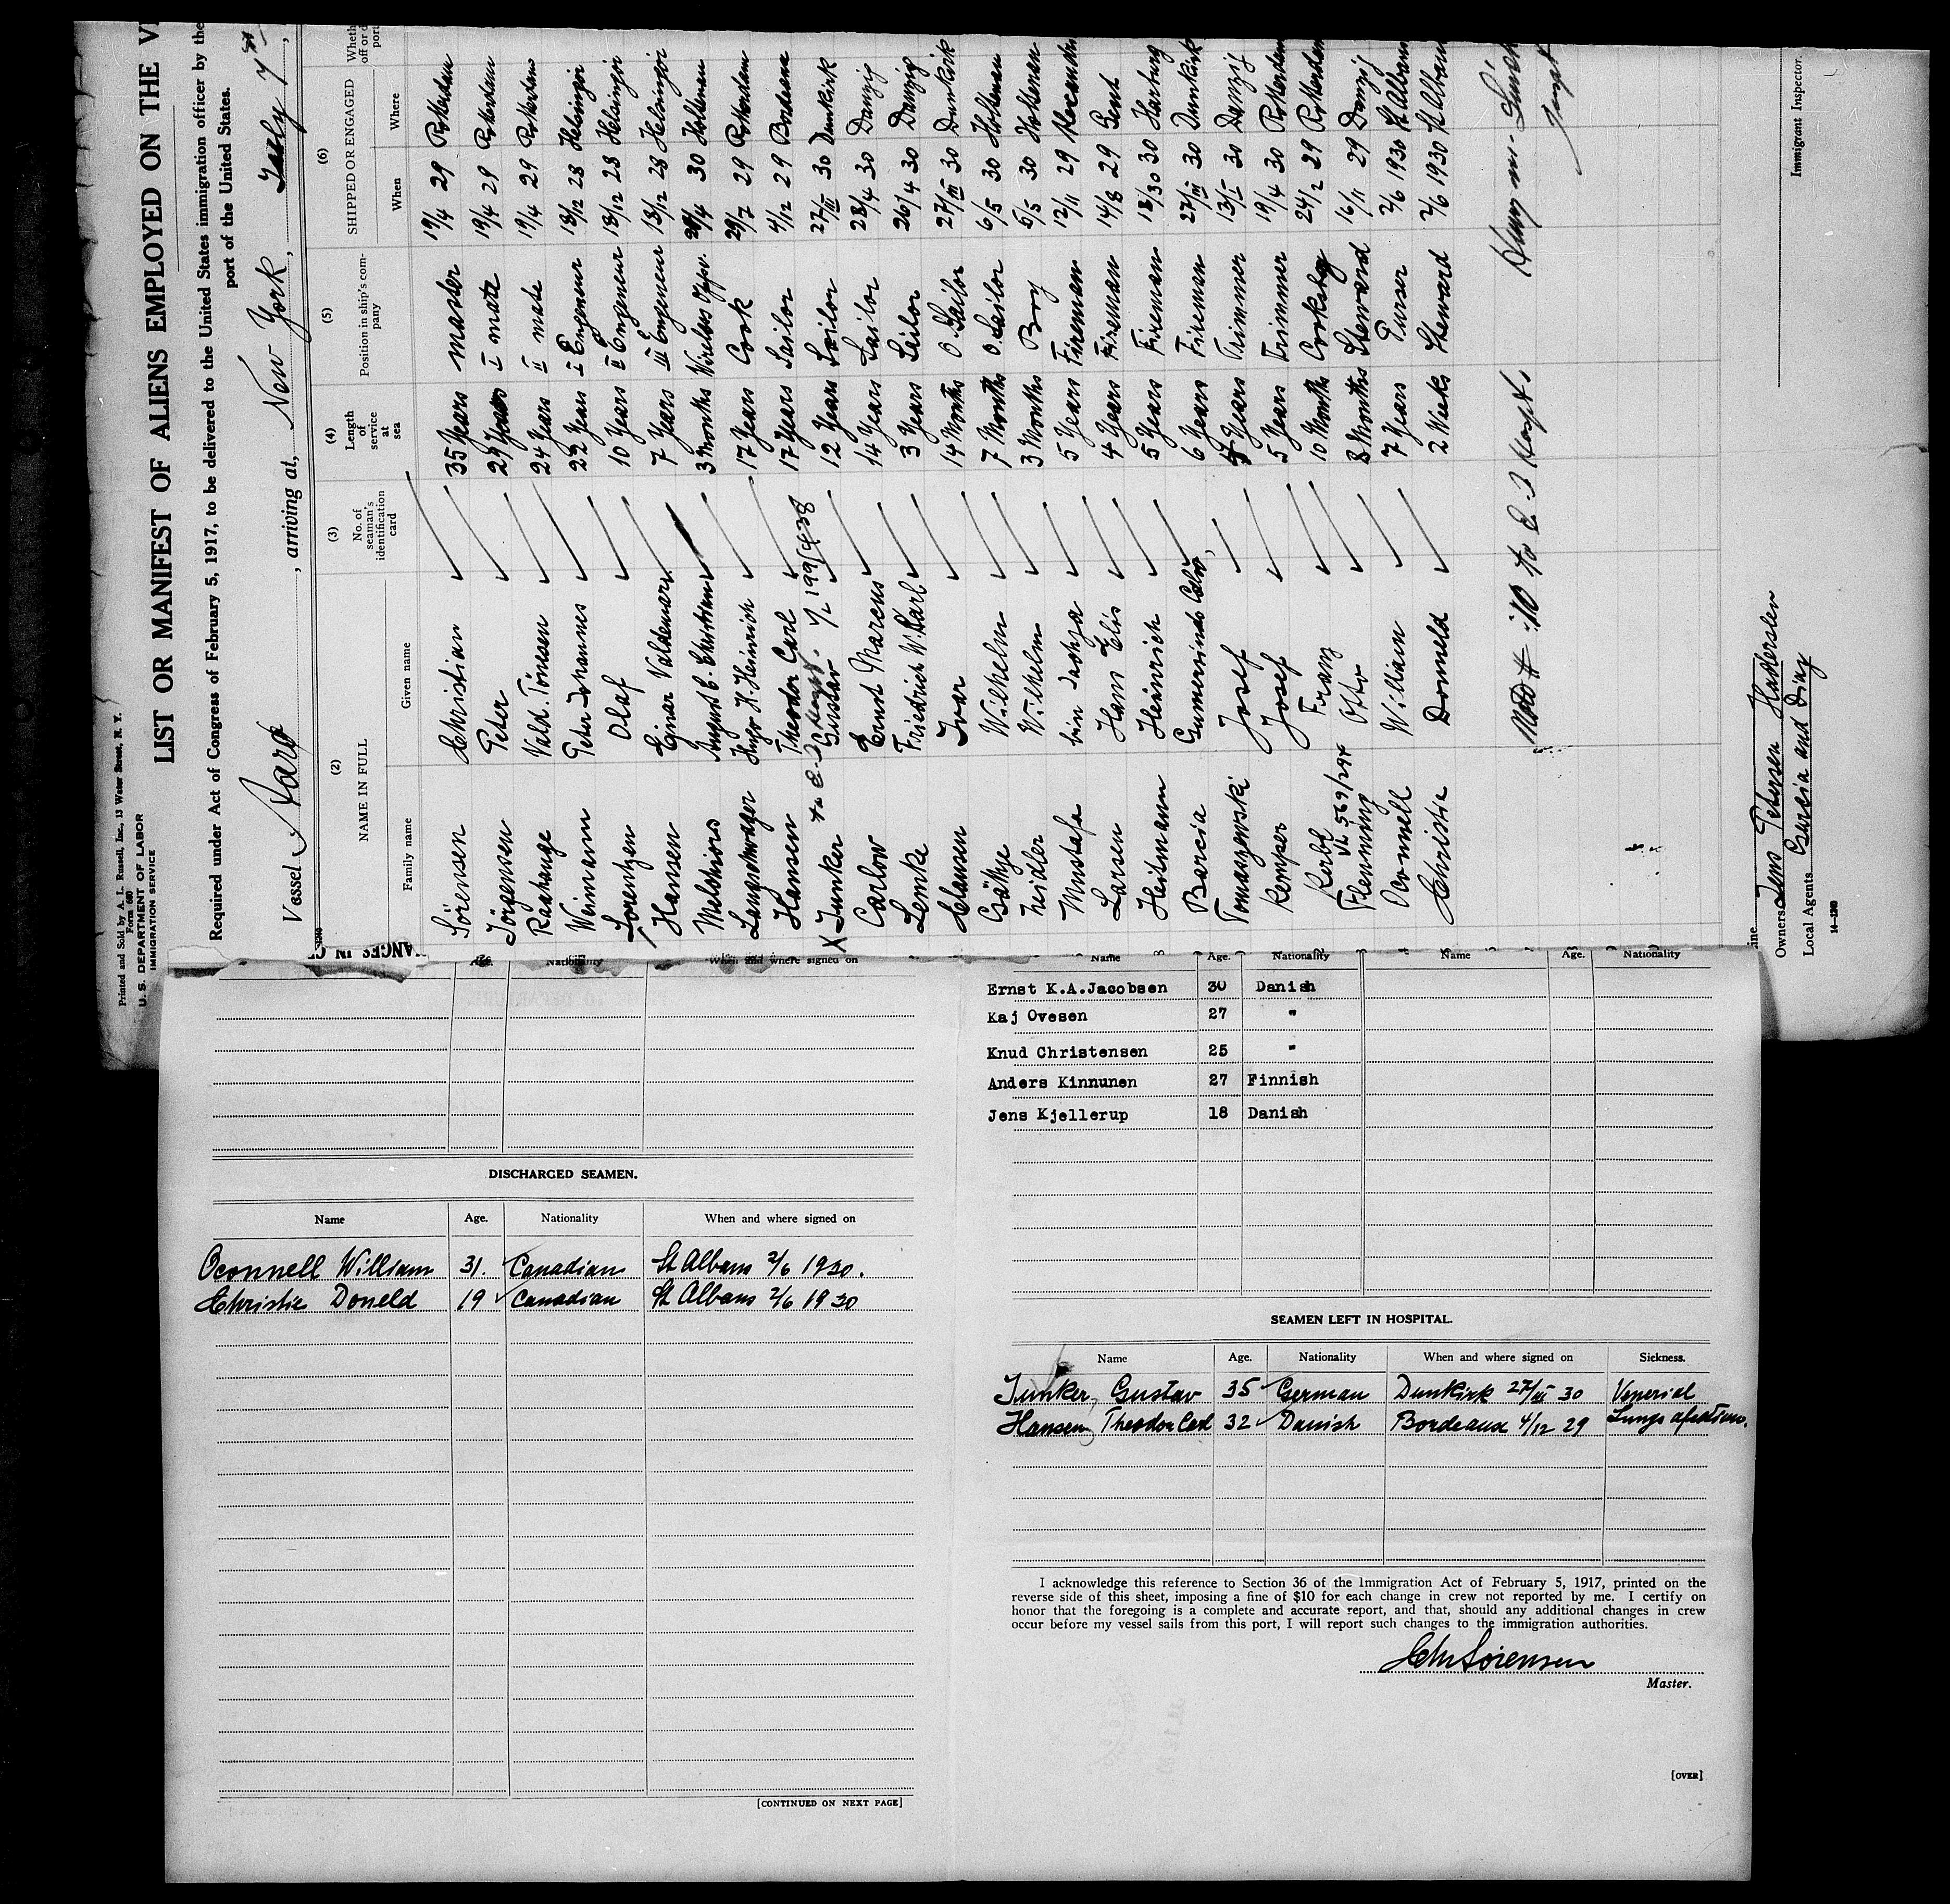 Printed and Sold by A. L. Russell, Inc., 13 Water Street, N. Y.
Form 680
U. S. DEPARTMENT OF LABOR
IMMIGRATION SERVICE
LIST OR MANIFEST OF ALIENS EMPLOYED ON THE
Required under Act of Congress of February 5, 1917, to be delivered to the United States immigration officer by the
port of the United States.
Vessel , arriving at, New York,
(2) (3) (4) (5) (6)
NAME IN FULL No. of seaman's identification card Length of service at sea Position in ship's company SHIPPED OR ENGAGED
Family name Given name When Where
Sörensen Christian 35 Years Master 19/4 29 Rotterdam
Jörgensen Peter I mate 19/4 29 Rotterdam
Raahauge Vald. Tönesen 24 Years II mate 19/4 29 Rotterdam
Weimann Peter Johannes 22 Years I Engeneur 13/12 28 Helsingör
Lorentzen Olaf 10 Years II Engeneur 13/12 28 Helsingör
Hansen Ejnar Valdemar 7 Years III Engeneur 13/12 28 Helsingör
Melchiors August C. Christian 3 Months Wireless 30 Holtenau
Hugo H. Heinrich 17 Years Cook 29/7 29 Rotterdam
Hansen Theodor Carl 17 Years Sailor 4/12 29
X Junker Gustav 12 Years Sailor 27/III 30 Dunkirk
Carlow Ernst Marcus 14 Years Sailor 23/4 30 Danzig
Lemke Friedrich W. Karl 3 Years Sailor 26/4 30 Danzig
Clausen Ivar 14 Months O. Sailor 27/III 30 Dunkirk
Gäthje Wilhelm 7 Months O. Sailor 6/5 30 Holtenau
Zeidler Wilhelm 3 Months Boy 5/5 30 Holtenau
Mustafa bin 5 Years Fireman 12/11 29
Larsen Hans Elis 4 Years Fireman 14/8 29 Gent
Heitmann Heinrich 5 Years Fireman 30 Harburg
Barcia Gumerindo 6 Years Fireman 27/III 30 Dunkirk
Tomaszewski Josef Years Trimmer 13/I 30 Danzig
Kemper Josef 5 Years Trimmer 19/4 30 Rotterdam
Korbe Franz 10 Months 24/2 29 Rotterdam
Flemming Otto 8 Months Steward 16/11 29 Danzig
Oconnell William 7 Years Purser 2/6 1930 St Albans
Christie Doneld 2 Weeks Steward 2/6 1930 St Albans
Owners Jens Petersen Haderslev
Local Agents Garcia and Diaz
Immigrant Inspector.
Age. Nationality When and where signed on
DISCHARGED SEAMEN.
Name Age. Nationality When and where signed on
Oconnell William 31. Canadian St Albans 2/6 1930.
Christie Doneld 19 Canadian St Albans 2/6 1930
[CONTINUED ON NEXT PAGE]
Name Age. Nationality Name Age. Nationality
Ernst K.A.Jacobsen 30 Danish
Kaj Ovesen 27 "
Knud Christensen 25 "
Anders Kinnunen 27 Finnish
Jens Kjellerup 18 Danish
SEAMEN LEFT IN HOSPITAL.
Name Age. Nationality When and where signed on Sickness.
Junker, Gustav 35 German Dunkirk 27/III 30 Venerial
Hansen, Theodor Carl 32 Danish Bordeaux 4/12 29 Lungs
I acknowledge this reference to Section 36 of the Immigration Act of February 5, 1917, printed on the
reverse side of this sheet, imposing a fine of $10 for each change in crew not reported by me. I certify on
honor that the foregoing is a complete and accurate report, and that, should any additional changes in crew
occur before my vessel sails from this port, I will report such changes to the immigration authorities.
Chr Sörensen
Master.
[OVER]